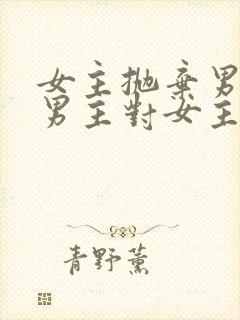 女主拋棄男
男主對女主
青野薰